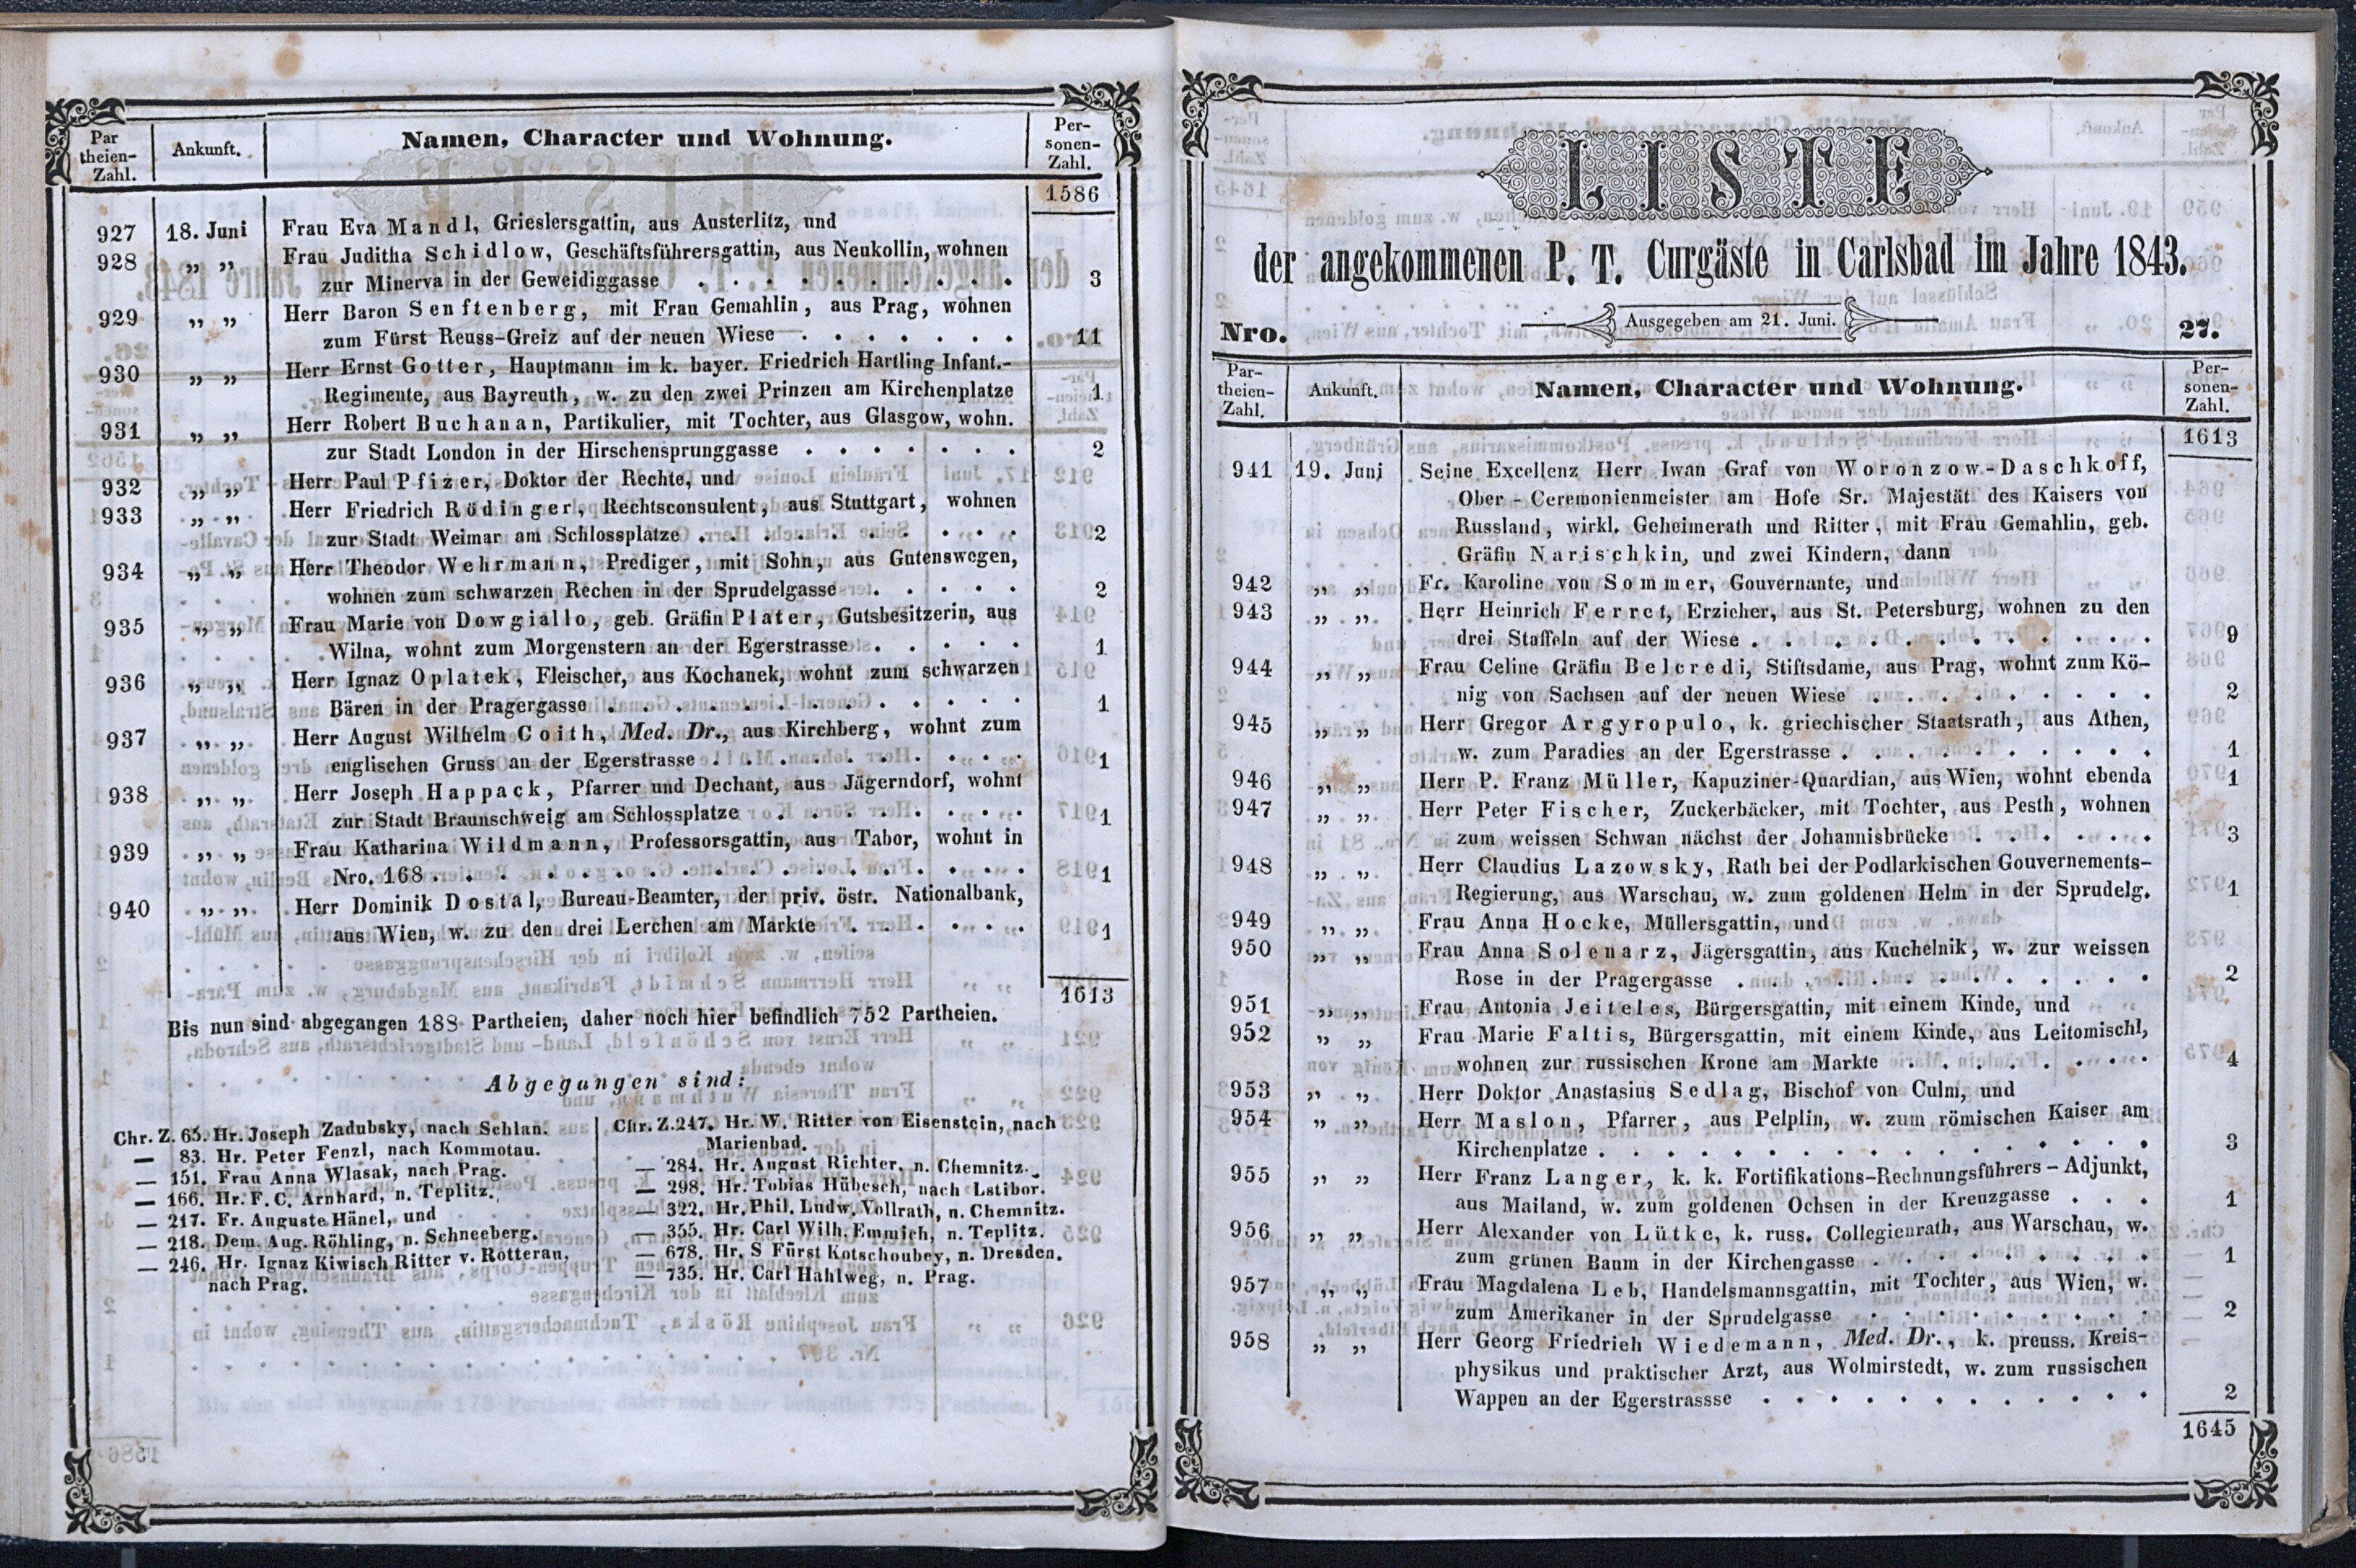 Par
theien-
Zahl.
Ankunft.
Namen, Character und Wohnung.
Per-
sonen-
Zahl.
1586
927 18. Juni Frau Eva Mandl, Grieslersgattin, aus Austerlitz, und
928 „ „ Frau Juditha Schidlow, Geschäftsführersgattin, aus Neukollin, wohnen
zur Minerva in der Geweidiggasse . . . . . . . . . . 3
929 „ „ Herr Baron Senftenberg, mit Frau Gemahlin, aus Prag, wohnen
zum Fürst Reuss-Greiz auf der neuen Wiese . . . . . . . 11
930 „ „ Herr Ernst Gotter, Hauptmann im k. bayer. Friedrich Hartling Infant.-
Regimente, aus Bayreuth, w. zu den zwei Prinzen am Kirchenplatze 1
931 „ „ Herr Robert Buchanan, Partikulier, mit Tochter, aus Glasgow, wohn.
zur Stadt London in der Hirschensprunggasse . . . . . . . 2
932 „ „ Herr Paul Pfizer, Doktor der Rechte, und
933 „ „ Herr Friedrich Rödinger, Rechtsconsulent, aus Stuttgart, wohnen
zur Stadt Weimar am Schlossplatze . . . . . . . . . . 2
934 „ „ Herr Theodor Wehrmann, Prediger, mit Sohn, aus Gutenswegen,
wohnen zum schwarzen Rechen in der Sprudelgasse . . . . . 2
935 „ „ Frau Marie von Dowgiallo, geb. Gräfin Plater, Gutsbesitzerin, aus
Wilna, wohnt zum Morgenstern an der Egerstrasse . . . . . 1
936 „ „ Herr Ignaz Oplatek, Fleischer, aus Kochanek, wohnt zum schwarzen
Bären in der Pragergasse . . . . . . . . . . . . . 1
937 „ „ Herr August Wilhelm Coith, Med. Dr., aus Kirchberg, wohnt zum
englischen Gruss an der Egerstrasse . . . . . . . . . . 1
938 „ „ Herr Joseph Happack, Pfarrer und Dechant, aus Jägerndorf, wohnt
zur Stadt Braunschweig am Schlossplatze . . . . . . . . 1
939 „ „ Frau Katharina Wildmann, Professorsgattin, aus Tabor, wohnt in
Nro. 168 . . . . . . . . . . . . . . . . . . 1
940 „ „ Herr Dominik Dostal, Bureau-Beamter, der priv. östr. Nationalbank,
aus Wien, w. zu den drei Lerchen am Markte . . . . . . 1
1613
Bis nun sind abgegangen 188 Partheien, daher noch hier befindlich 752 Partheien.
Abgegangen sind:
Chr. Z. 65. Hr. Joseph Zadubsky, nach Schlan.
— 83. Hr. Peter Fenzl, nach Kommotau.
— 151. Frau Anna Wlasak, nach Prag.
— 166. Hr. F. C. Arnhard, n. Teplitz.
— 217. Fr. Auguste Hänel, und
— 218. Dem. Aug. Röhling, n. Schneeberg.
— 246. Hr. Ignaz Kiwisch Ritter v. Rotterau,
nach Prag.
Chr. Z. 247. Hr. W. Ritter von Eisenstein, nach
Marienbad.
— 284. Hr. August Richter, n. Chemnitz.
— 298. Hr. Tobias Hübesch, nach Lstibor.
— 322. Hr. Phil. Ludw. Vollrath, n. Chemnitz.
— 355. Hr. Carl Wilh. Emmich, n. Teplitz.
— 678. Hr. S Fürst Kotschoubey, n. Dresden.
— 735. Hr. Carl Hahlweg, n. Prag.
LISTE
der angekommenen P. T. Curgäste in Carlsbad im Jahre 1843.
Nro. Ausgegeben am 21. Juni. 27.
Par-
theien-
Zahl.
Ankunft.
Namen, Character und Wohnung.
Per-
sonen-
Zahl.
1613
941 19. Juni Seine Excellenz Herr Iwan Graf von Woronzow-Daschkoff,
Ober-Ceremonienmeister am Hofe Sr. Majestät des Kaisers von
Russland, wirkl. Geheimerath und Ritter, mit Frau Gemahlin, geb.
Gräfin Narischkin, und zwei Kindern, dann
942 „ „ Fr. Karoline von Sommer, Gouvernante, und
943 „ „ Herr Heinrich Ferret, Erzieher, aus St. Petersburg, wohnen zu den
drei Staffeln auf der Wiese . . . . . . . . . . . . 9
944 „ „ Frau Celine Gräfin Belcredi, Stiftsdame, aus Prag, wohnt zum Kö-
nig von Sachsen auf der neuen Wiese . . . . . . . . . 2
945 „ „ Herr Gregor Argyropulo, k. griechischer Staatsrath, aus Athen,
w. zum Paradies an der Egerstrasse . . . . . . . . . . 1
946 „ „ Herr P. Franz Müller, Kapuziner-Quardian, aus Wien, wohnt ebenda 1
947 „ „ Herr Peter Fischer, Zuckerbäcker, mit Tochter, aus Pesth, wohnen
zum weissen Schwan nächst der Johannisbrücke . . . . . . 3
948 „ „ Herr Claudius Lazowsky, Rath bei der Podlarkischen Gouvernements-
Regierung, aus Warschau, w. zum goldenen Helm in der Sprudelg. 1
949 „ „ Frau Anna Hocke, Müllersgattin, und
950 „ „ Frau Anna Solenarz, Jägersgattin, aus Kuchelnik, w. zur weissen
Rose in der Pragergasse . . . . . . . . . . . . . 2
951 „ „ Frau Antonia Jeiteles, Bürgersgattin, mit einem Kinde, und
952 „ „ Frau Marie Faltis, Bürgersgattin, mit einem Kinde, aus Leitomischl,
wohnen zur russischen Krone am Markte . . . . . . . . 4
953 „ „ Herr Doktor Anastasius Sedlag, Bischof von Culm, und
954 „ „ Herr Maslon, Pfarrer, aus Pelplin, w. zum römischen Kaiser am
Kirchenplatze . . . . . . . . . . . . . . . . . 3
955 „ „ Herr Franz Langer, k. k. Fortifikations-Rechnungsführers-Adjunkt,
aus Mailand, w. zum goldenen Ochsen in der Kreuzgasse . . . 1
956 „ „ Herr Alexander von Lütke, k. russ. Collegienrath, aus Warschau, w.
zum grünen Baum in der Kirchengasse . . . . . . . . . 1
957 „ „ Frau Magdalena Leb, Handelsmannsgattin, mit Tochter, aus Wien, w.
zum Amerikaner in der Sprudelgasse . . . . . . . . . 2
958 „ „ Herr Georg Friedrich Wiedemann, Med. Dr., k. preuss. Kreis-
physikus und praktischer Arzt, aus Wolmirstedt, w. zum russischen
Wappen an der Egerstrassse . . . . . . . . . . . . 2
1645